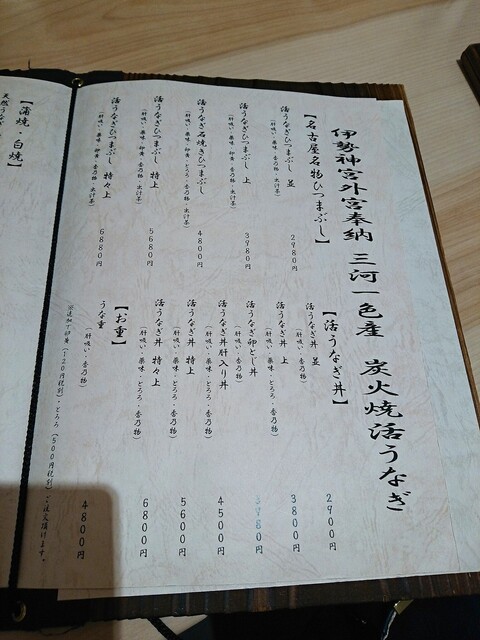 伊勢神宮外宮奉納 三河一色産 炭火焼活うなぎ
【名古屋名物ひつまぶし】
活うなぎひつまぶし 並
(肝吸い・薬味・香乃物・出汁茶)
2980円
活うなぎひつまぶし 上
(肝吸い・薬味・卵黄・香乃物・出汁茶)
3980円
活うなぎ石焼きひつまぶし
(肝吸い・薬味・卵黄・とろろ・香乃物・出汁茶)
4800円
活うなぎひつまぶし 特上
(肝吸い・薬味・卵黄・香乃物・出汁茶)
5680円
活うなぎひつまぶし 特々上
(肝吸い・薬味・卵黄・香乃物・出汁茶)
6880円
【活うなぎ丼】
活うなぎ丼 並
(肝吸い・香乃物)
2900円
活うなぎ丼 上
(肝吸い・薬味・とろろ・香乃物)
3800円
活うなぎ卵とじ丼
(肝吸い・香乃物)
3980円
活うなぎ肝入り丼
(肝吸い・薬味・とろろ・香乃物)
4500円
活うなぎ丼 特上
(肝吸い・薬味・とろろ・香乃物)
5600円
活うなぎ丼 特々上
(肝吸い・薬味・とろろ・香乃物)
6800円
【お重】
うな重
(肝吸い・香乃物)
4800円
※追加で卵黄(120円税別)・とろろ(500円税別)・注文頂けます。
【蒲焼・白焼】
天然うなぎ